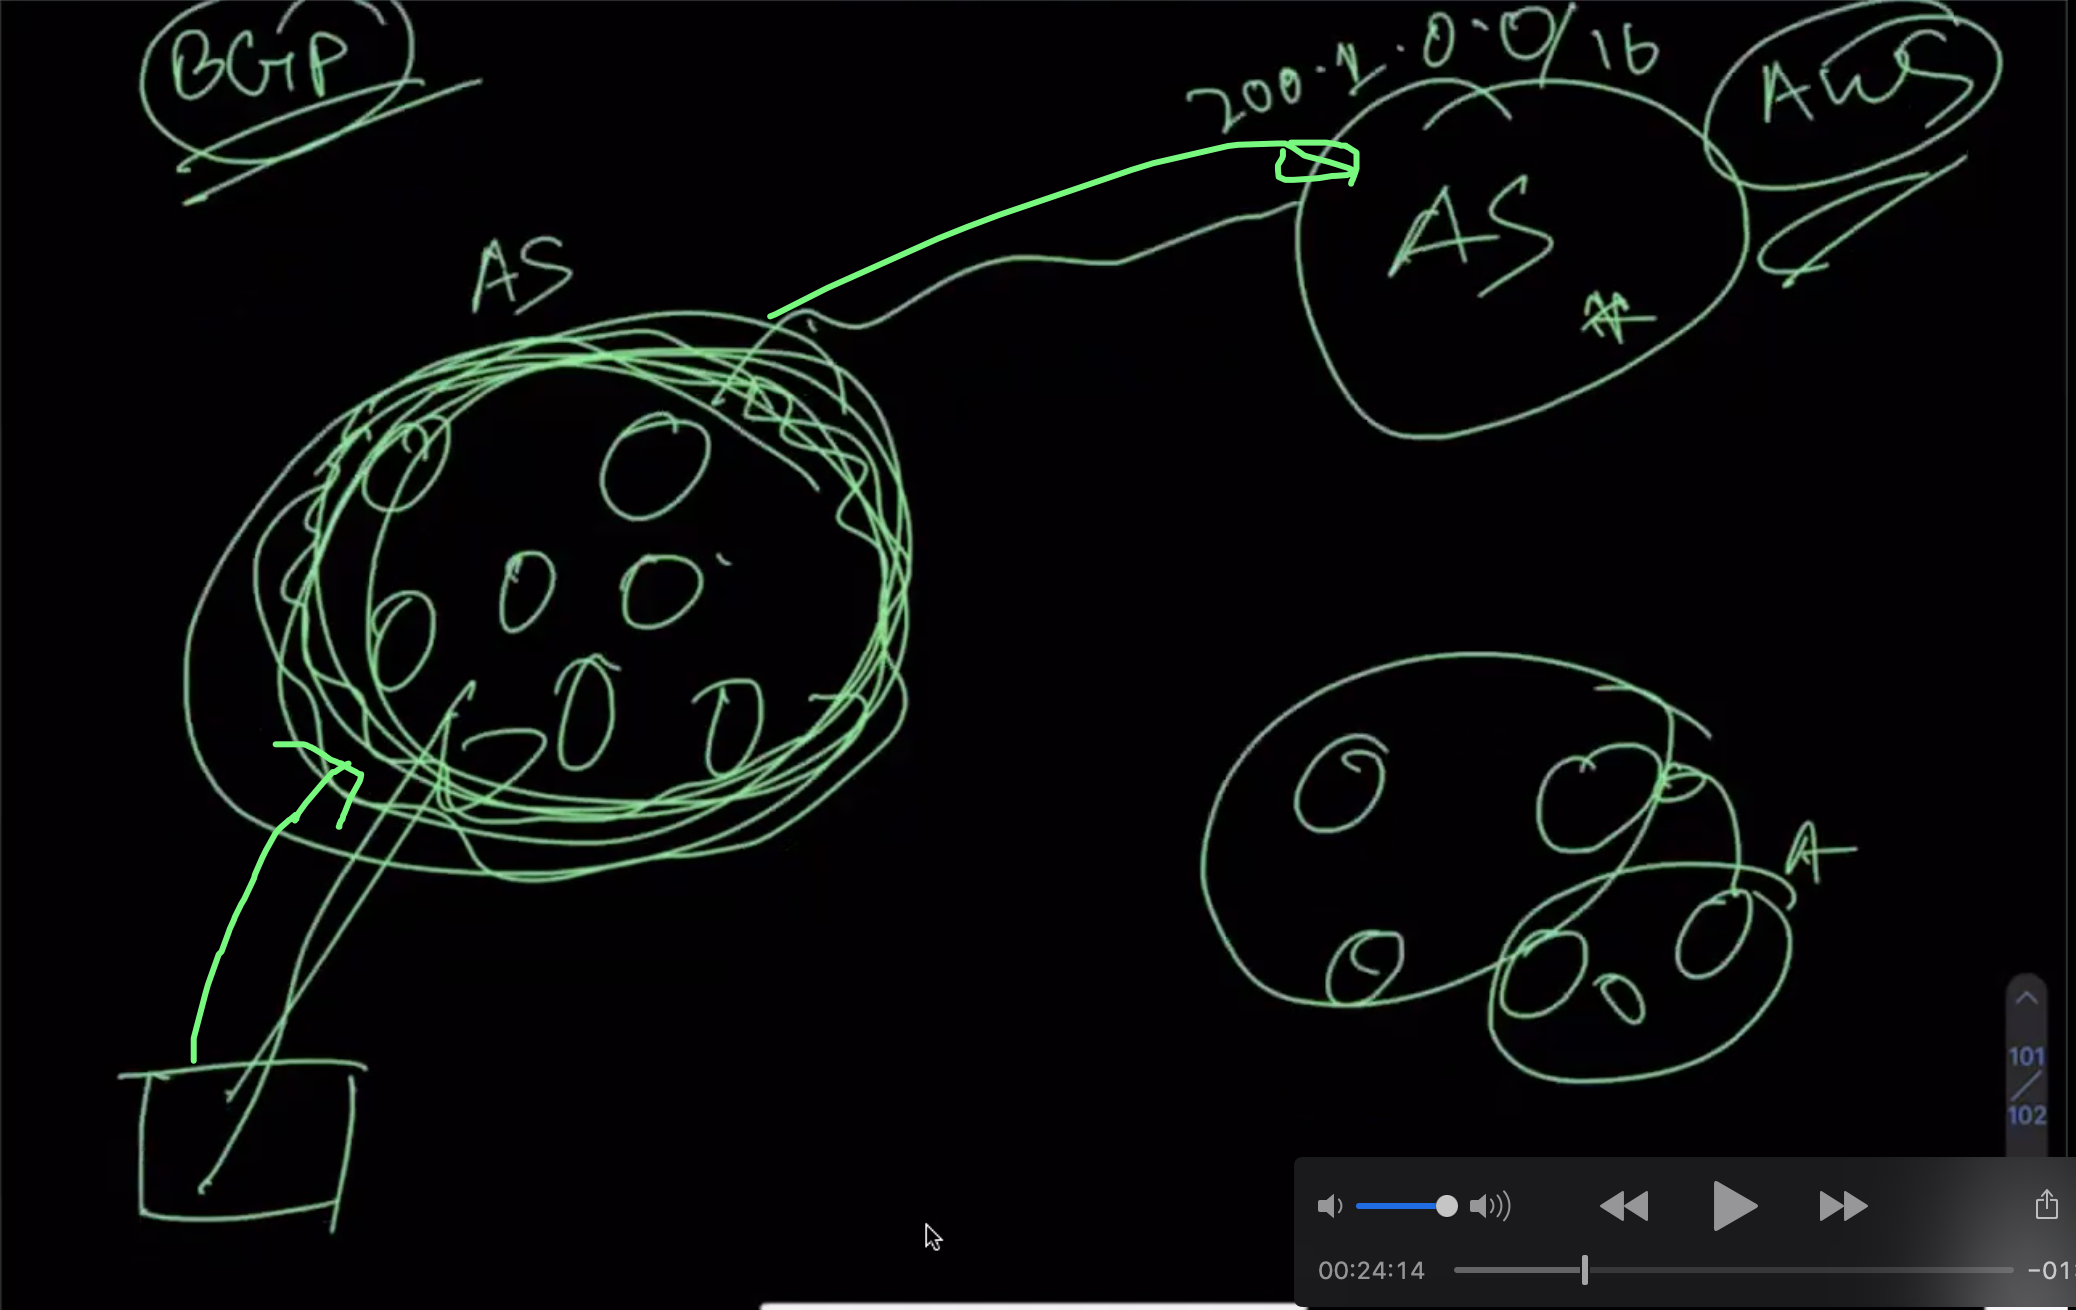 BGP
200.1.0.0/16
AWS
AS
AS
101
102
00:24:14
-01: